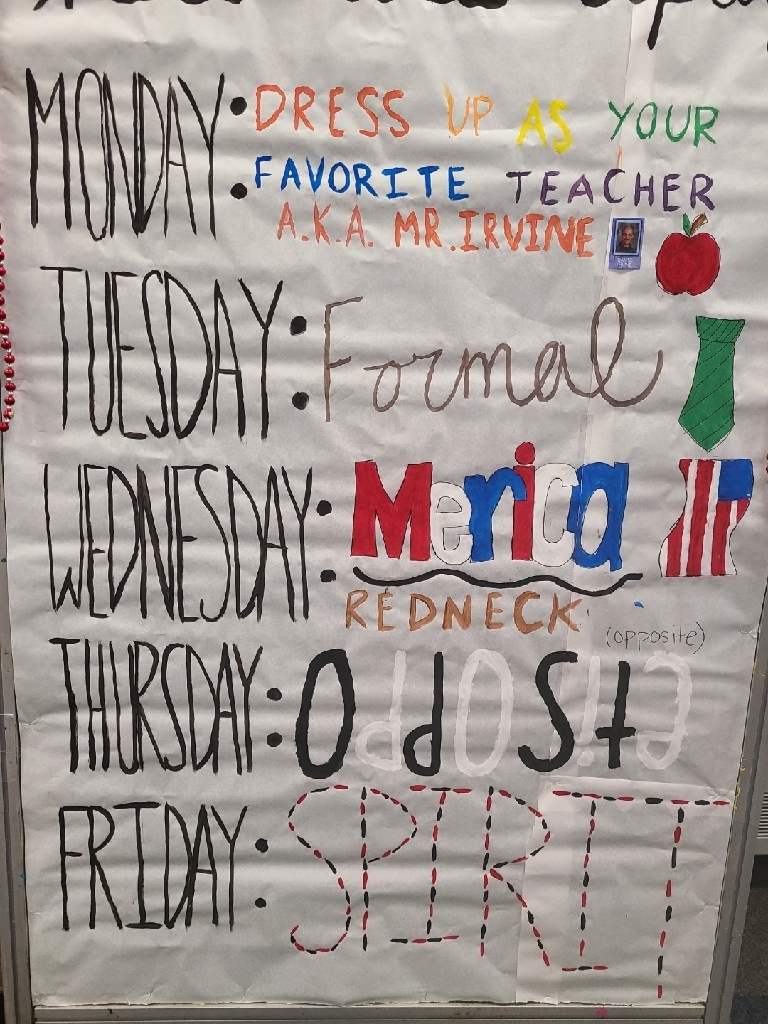 MONDAY: DRESS UP AS YOUR
FAVORITE TEACHER
A.K.A. MR. IRVINE
TUESDAY: Formal
WEDNESDAY: Merica
REDNECK
(opposite)
THURSDAY: OppOSite
FRIDAY: SPIRIT